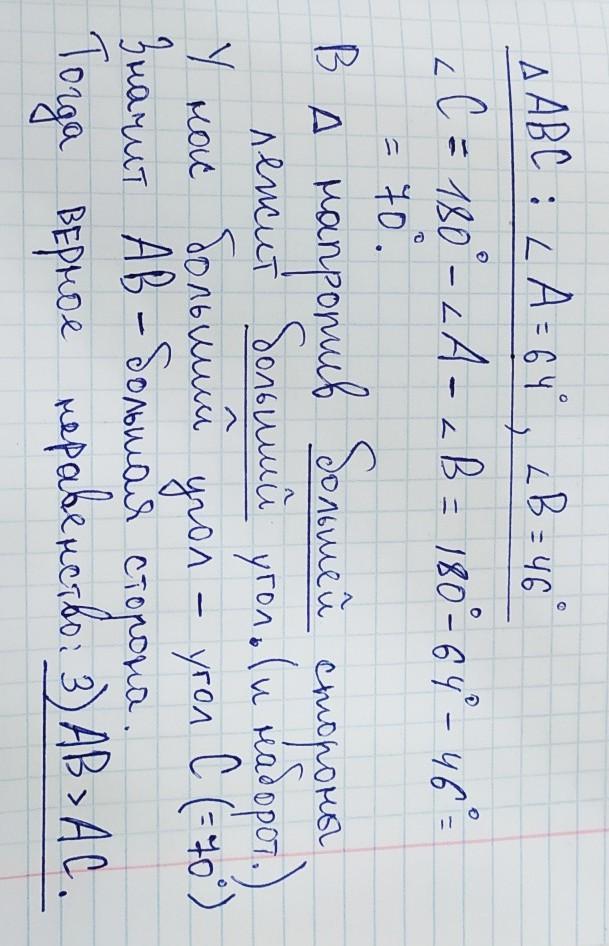 Δ ABC : ∠A = 64°, ∠B = 46°
∠C = 180° - ∠A - ∠B = 180° - 64° - 46° =
= 70°.
В Δ напротив большей стороны
лежит больший угол. (и наборот.)
У нас больший угол - угол C (=70°)
Значит AB - большая сторона.
Тогда ВЕРНОЕ неравенство: 3) AB > AC.